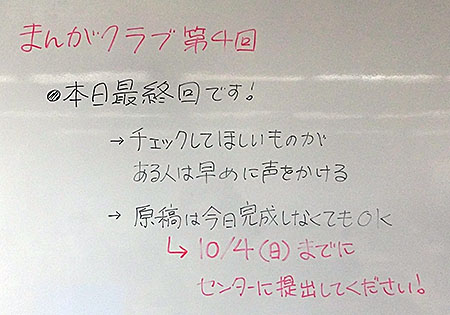 まんがクラブ第4回
◉本日最終回です!
→チェックしてほしいものが
ある人は早めに声をかける
→原稿は今日完成しなくてもOK
↳10/4(日)までに
センターに提出してください!